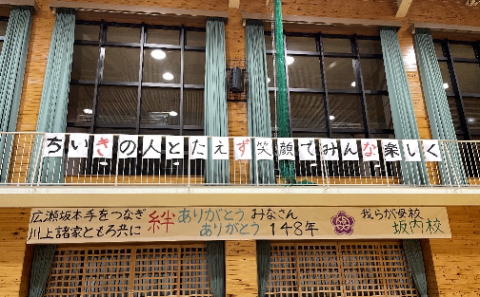 ちいきの人とたえず笑顔でみんな楽しく
広瀬坂本手をつなぎ 絆 ありがとう みなさん 我らが母校
川上諸家ともろ共に ありがとう 148年 坂内校